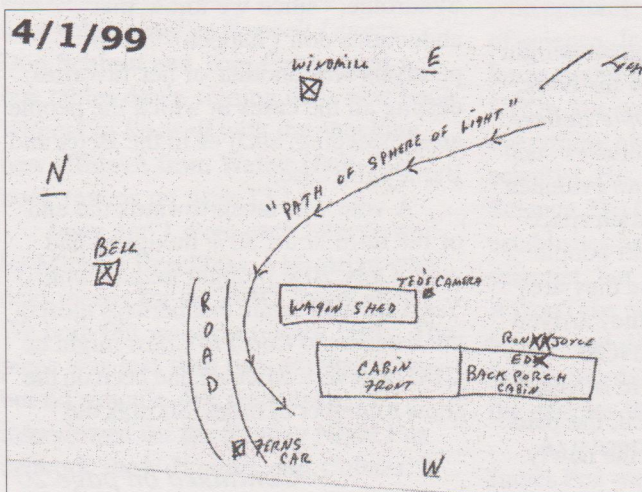 4/1/99
WINDMILL
E
"PATH OF SPHERE OF LIGHT"
N
BELL
ROAD
TED'S CAMERA
WAGON SHED
RON XX JOYCE
ED X
CABIN
FRONT
BACK PORCH
CABIN
FERNS
CAR
W